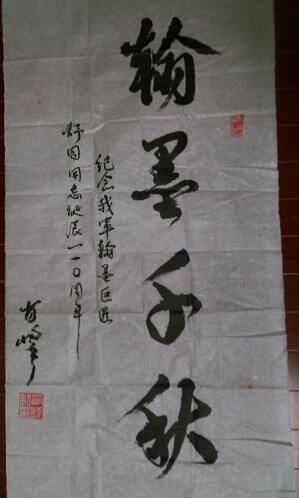 翰墨千秋
纪念我军翰墨巨匠
舒同同志诞辰一一〇周年